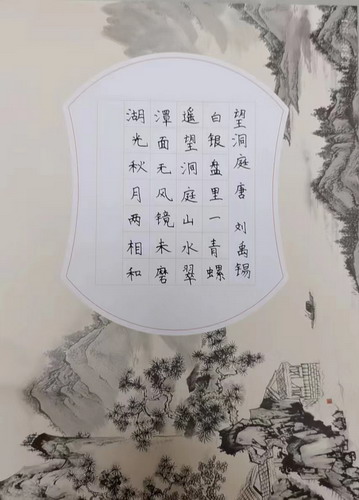 望洞庭 唐 刘禹锡
白银盘里一青螺
遥望洞庭山水翠
潭面无风镜未磨
湖光秋月两相和